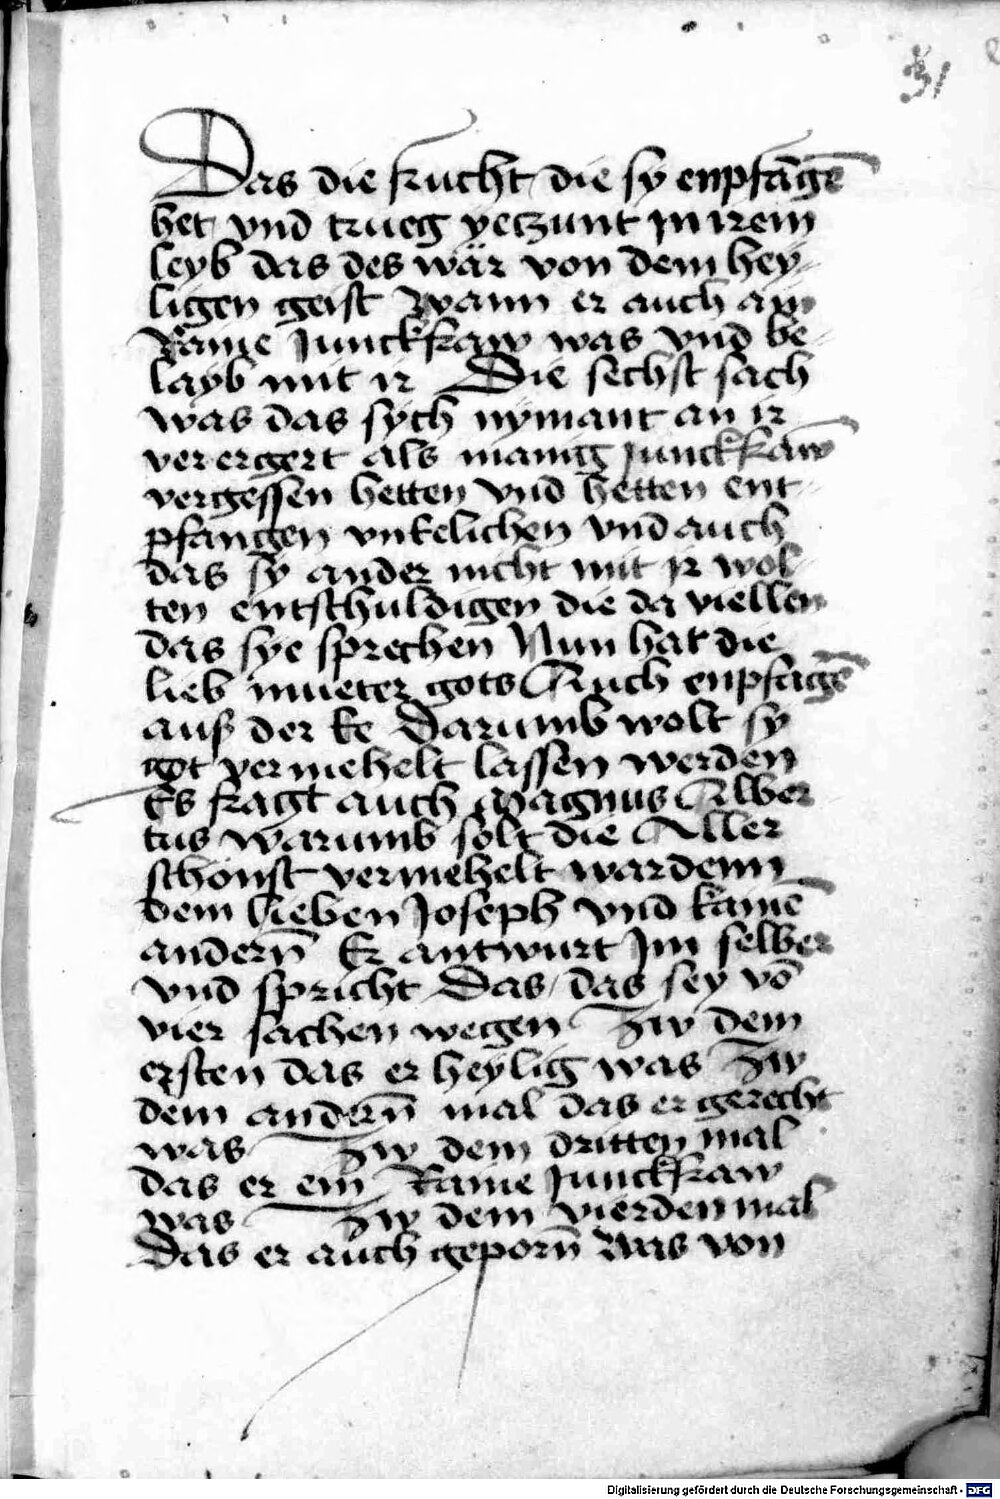 31
Das die frucht die sy enpfāgē
het vnd trueg yetzunt in irem
leyb das des wär von dem hey-
ligen geist Wann er auch ain
Raine Junckfraw was vnd be-
layb mit ir Die sechst sach
was das sych nymant an ir
verergert als manig junckfraw̄
vergessen hetten vnd hetten ent-
pfangen vnkelichen vnd auch
das sy ander nicht mit ir wol-
ten entschuldigen die da viellen
das sye sprechen Nun hat die
lieb mueter gots Auch enpfāgē
auß der Ee Darumb wolt sy
got vermehelt lassen werden
Es fragt auch Magnus Alber
tus warumb solt die Aller
schönst vermehelt wardenn
dem lieben Joseph vnd kainē
andern̄ Er antwurt Im selber
vnd spricht Das das sey vō
vier sachen wegen Zw dem
ersten das er heylig was Zw
dem andern̄ mal das er gerecht
was Zw dem dritten mal
das er ein Raine Junckfraw
was Zw dem vierden mal
Das er auch geporn̄ was von
Digitalisierung gefördert durch die Deutsche Forschungsgemeinschaft - DFG